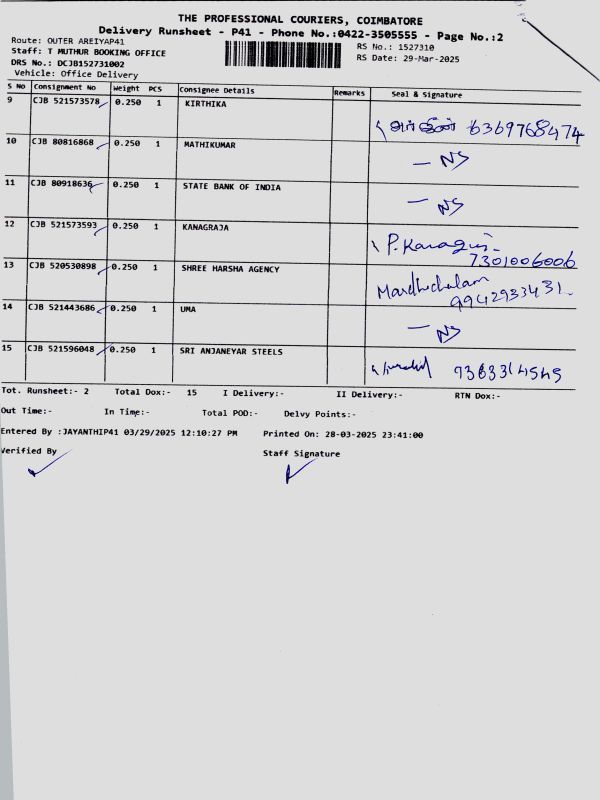 THE PROFESSIONAL COURIERS, COIMBATORE
Delivery Runsheet - P41 - Phone No.:0422-3505555 - Page No.:2
Route: OUTER AREIYAP41
RS No.: 1527310
Staff: T MUTHUR BOOKING OFFICE
RS Date: 29-Mar-2025
DRS No.: DCJB152731002
Vehicle: Office Delivery
S NO Consignment No Weight PCS Consignee Details Remarks Seal & Signature
9 CJB 521573578 0.250 1 KIRTHIKA
6369768474
10 CJB 80816868 0.250 1 MATHIKUMAR
- NS
11 CJB 80918636 0.250 1 STATE BANK OF INDIA
- NS
12 CJB 521573593 0.250 1 KANAGRAJA
P. Kanagu
7301006006
13 CJB 520530898 0.250 1 SHREE HARSHA AGENCY
9942933431
14 CJB 521443686 0.250 1 UMA
- NS
15 CJB 521596048 0.250 1 SRI ANJANEYAR STEELS
Tot. Runsheet:- 2 Total Dox:- 15 I Delivery:- II Delivery:- RTN Dox:-
Out Time:- In Time:- Total POD:- Delvy Points:-
Entered By :JAYANTHIP41 03/29/2025 12:10:27 PM Printed On: 28-03-2025 23:41:00
Verified By Staff Signature